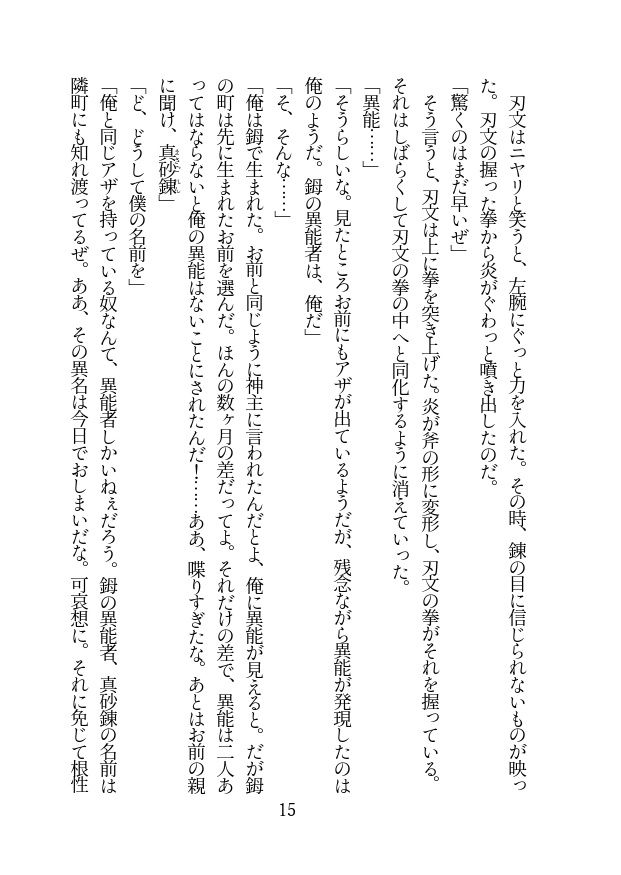 刃文はニヤリと笑うと、左腕にぐっと力を入れた。その時、錬の目に信じられないものが映っ
た。刃文の握った拳から炎がぐわっと噴き出したのだ。
「驚くのはまだ早いぜ」
　そう言うと、刃文は上に拳を突き上げた。炎が斧の形に変形し、刃文の拳がそれを握っている。
それはしばらくして刃文の拳の中へと同化するように消えていった。
「異能……」
「そうらしいな。見たところお前にもアザが出ているようだが、残念ながら異能が発現したのは
俺のようだ。鉧の異能者は、俺だ」
「そ、そんな……」
「俺は鉧で生まれた。お前と同じように神主に言われたんだとよ、俺に異能が見えると。だが鉧
の町は先に生まれたお前を選んだ。ほんの数ヶ月の差だってよ。それだけの差で、異能は二人あ
ってはならないと俺の異能はないことにされたんだ！……ああ、喋りすぎたな。あとはお前の親
に聞け、真砂錬」
「ど、どうして僕の名前を」
「俺と同じアザを持っている奴なんて、異能者しかいねぇだろう。鉧の異能者、真砂錬の名前は
隣町にも知れ渡ってるぜ。ああ、その異名は今日でおしまいだな。可哀想に。それに免じて根性
15